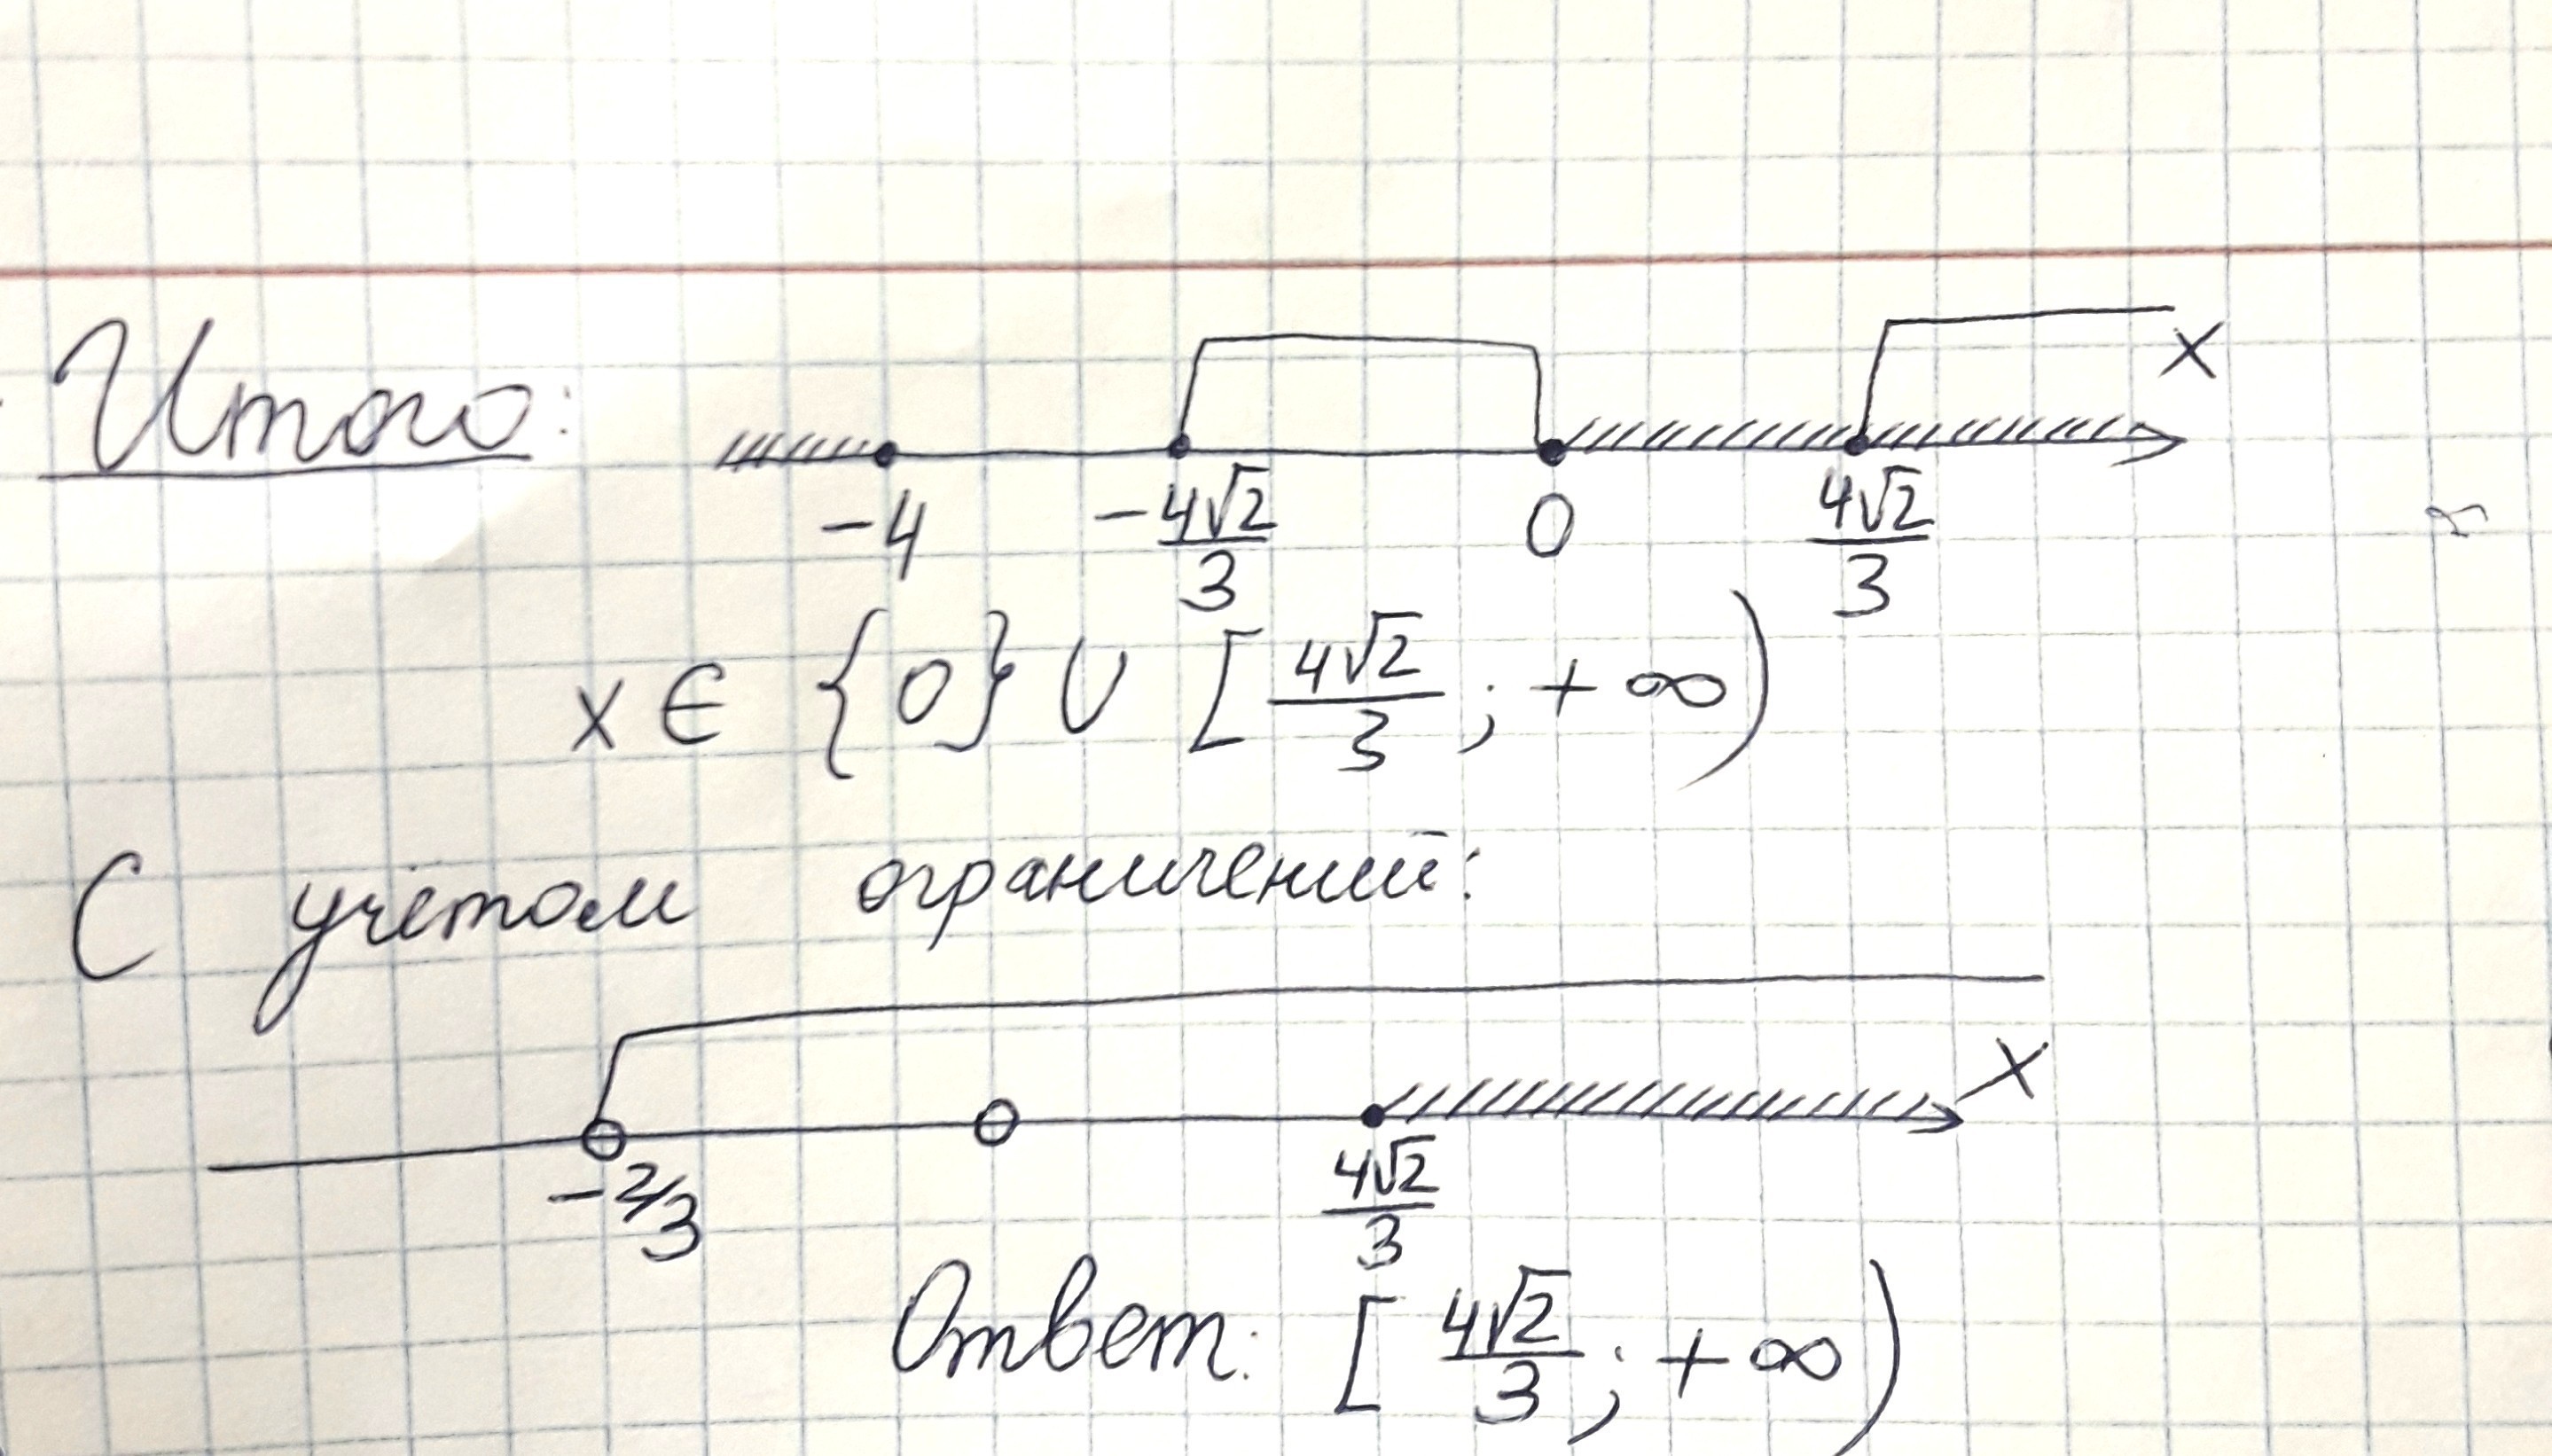 Итого:
x
-4 -4√2/3 0 4√2/3
x ∈ {0} ∪ [4√2/3; +∞)
С учётом ограничений:
x
-2/3 4√2/3
Ответ: [4√2/3; +∞)